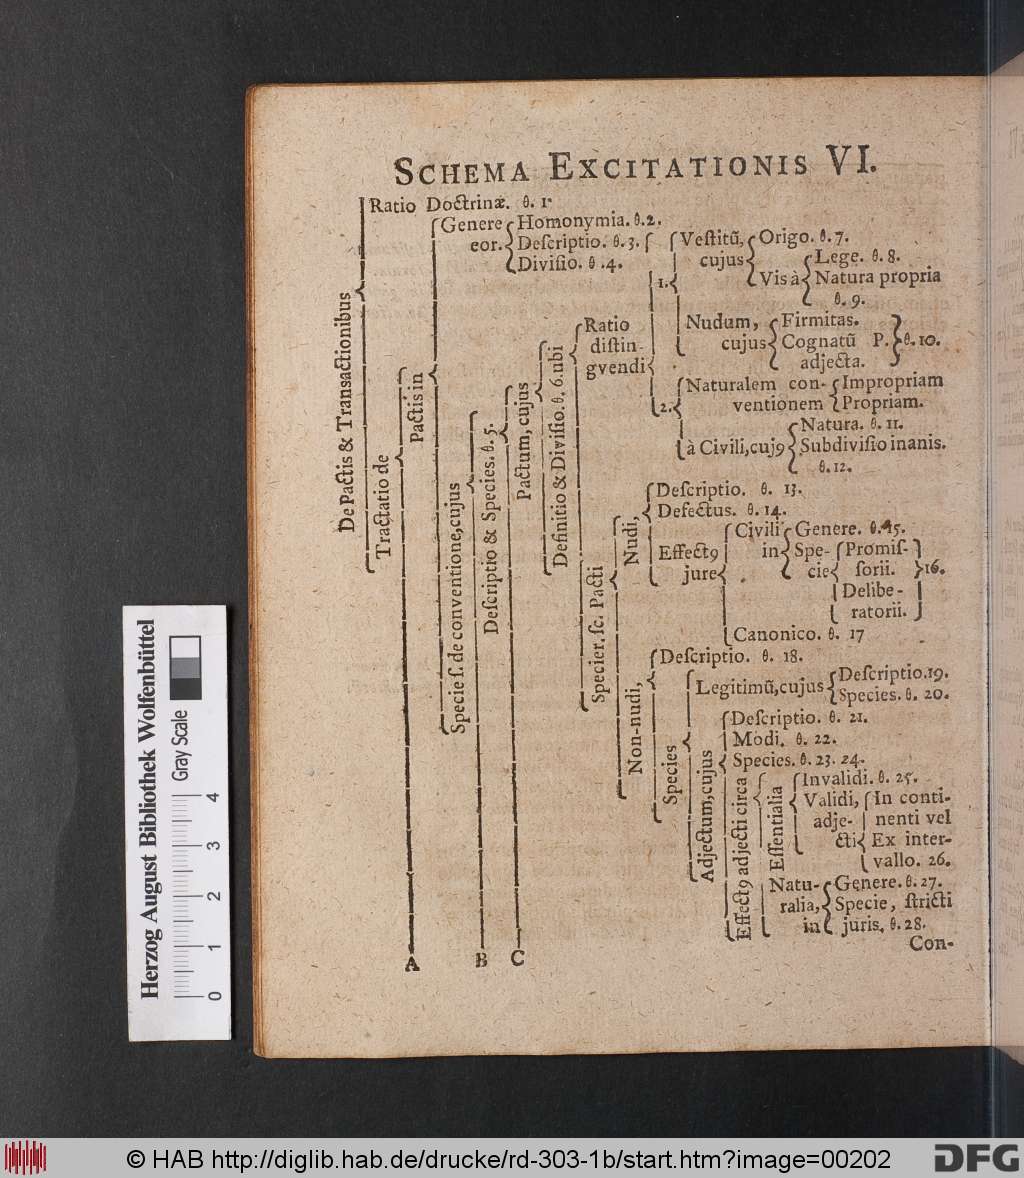 SCHEMA EXCITATIONIS VI.
De Pactis & Transactionibus
Ratio Doctrinæ. θ. 1.
Tractatio de
Pactis in
Genere
eor.
Homonymia. θ. 2.
Deſcriptio. θ. 3.
Diviſio. θ. 4.
Specie ſ. de conventione, cujus
Deſcriptio & Species. θ. 5.
Pactum, cujus
Definitio & Diviſio. θ. 6. ubi
Ratio
diſtin-
gvendi
1.
Veſtitũ,
cujus
Origo. θ. 7.
Vis à
Lege. θ. 8.
Natura propria
θ. 9.
Nudum,
cujus
Firmitas.
Cognatũ P.
adjecta.
θ. 10.
2.
Naturalem con-
ventionem
Impropriam
Propriam.
à Civili, cuj9
Natura. θ. 11.
Subdiviſio inanis.
θ. 12.
Specier. ſc. Pacti
Nudi,
Deſcriptio. θ. 13.
Defectus. θ. 14.
Effect9
jure
Civili
in
Genere. θ. 15.
Spe-
cie
Promiſ-
ſorii.
Delibe-
ratorii.
16.
Canonico. θ. 17
Non-nudi,
Deſcriptio. θ. 18.
Species
Legitimũ, cujus
Deſcriptio. 19.
Species. θ. 20.
Adjectum, cujus
Deſcriptio. θ. 21.
Modi. θ. 22.
Species. θ. 23. 24.
Effect9 adjecti circa
Eſſentialia
Invalidi. θ. 25.
Validi,
adje-
cti
In conti-
nenti vel
Ex inter-
vallo. 26.
Natu-
ralia,
in
Genere. θ. 27.
Specie, ſtricti
juris. θ. 28.
Con-
A B C
Herzog August Bibliothek Wolfenbüttel
Gray Scale
0 1 2 3 4
© HAB http://diglib.hab.de/drucke/rd-303-1b/start.htm?image=00202
DFG